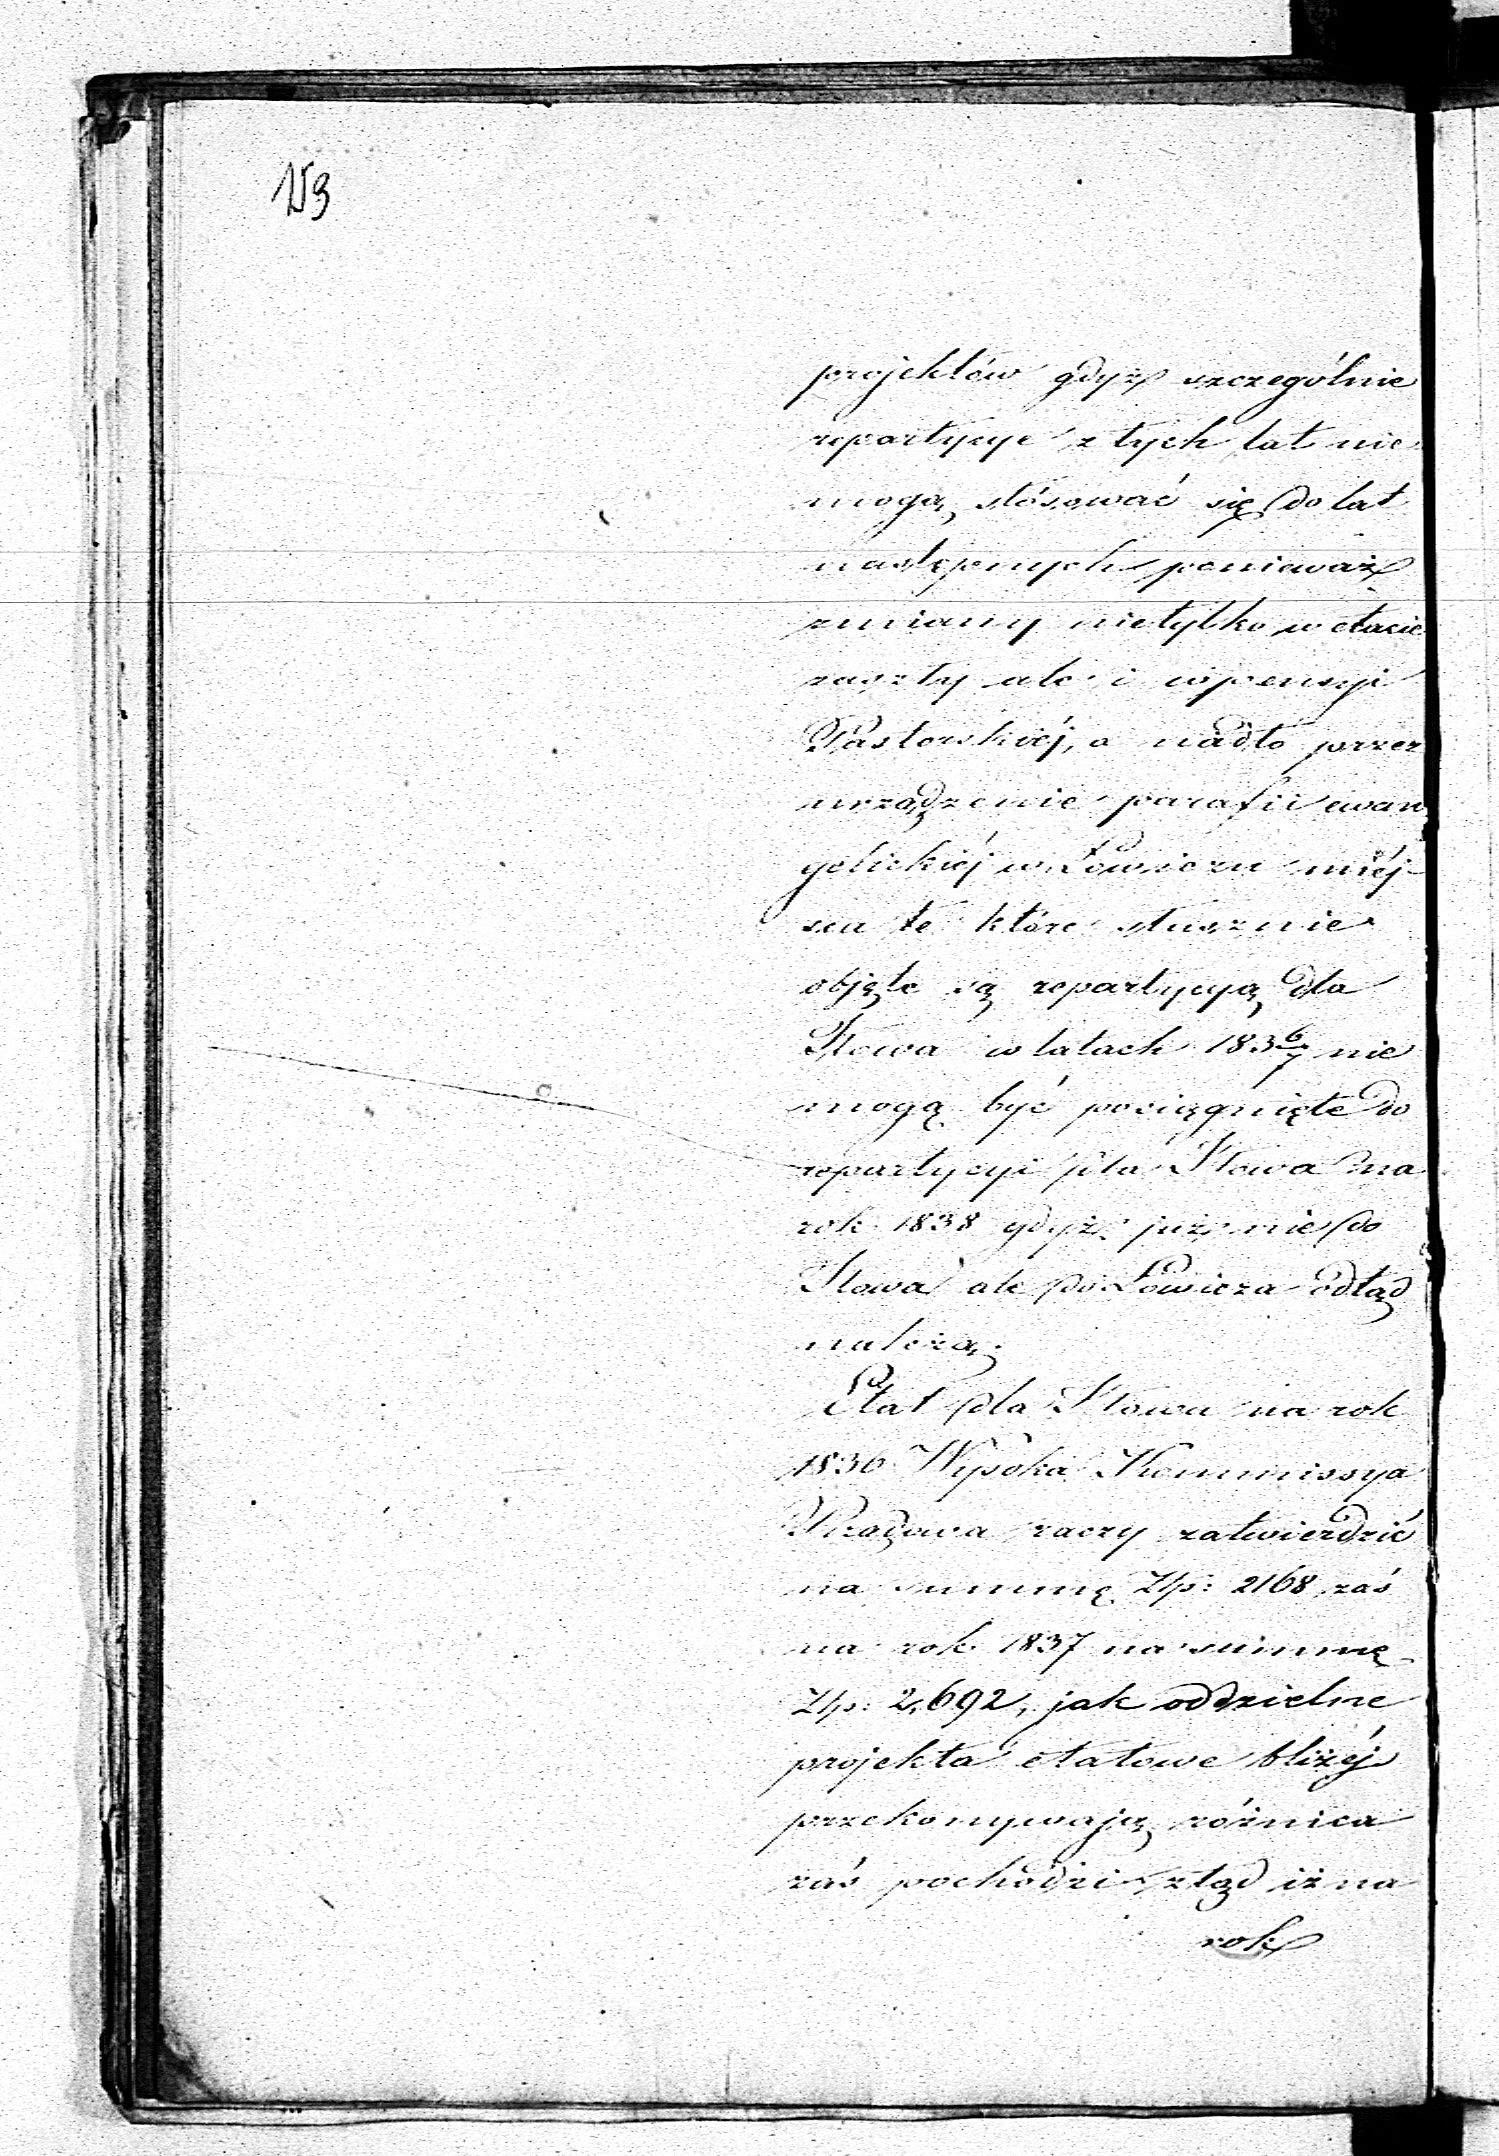 153
projektów gdyż szczególnie
repartycye z tych lat nie
mogą stósować się do lat
następnych ponieważ
zmiany nietylko w etacie
zaszły ale i w pensyi
Pastorskiéj, a nadto przez
urządzenie parafii ewan
gelickiéj w Łowiczu miéj-
sca te które słusznie
objęte są repartycyą dla
Iłowa w latach 1836/7 nie
mogą być pociągnięte do
repartycyi dla Iłowa na
rok 1838 gdyż już nie do
Iłowa ale do Łowicza odtąd
należą.
Etat dla Iłowa na rok
1836 Wysoka Kommissya
Rządowa raczy zatwierdzić
na summę Złp: 2168 zaś
na rok 1837 na summę
Złp: 2,692, jak oddzielne
projekta etatowe bliżéj
przekonywają różnica
zaś pochodzi ztąd iż na
rok